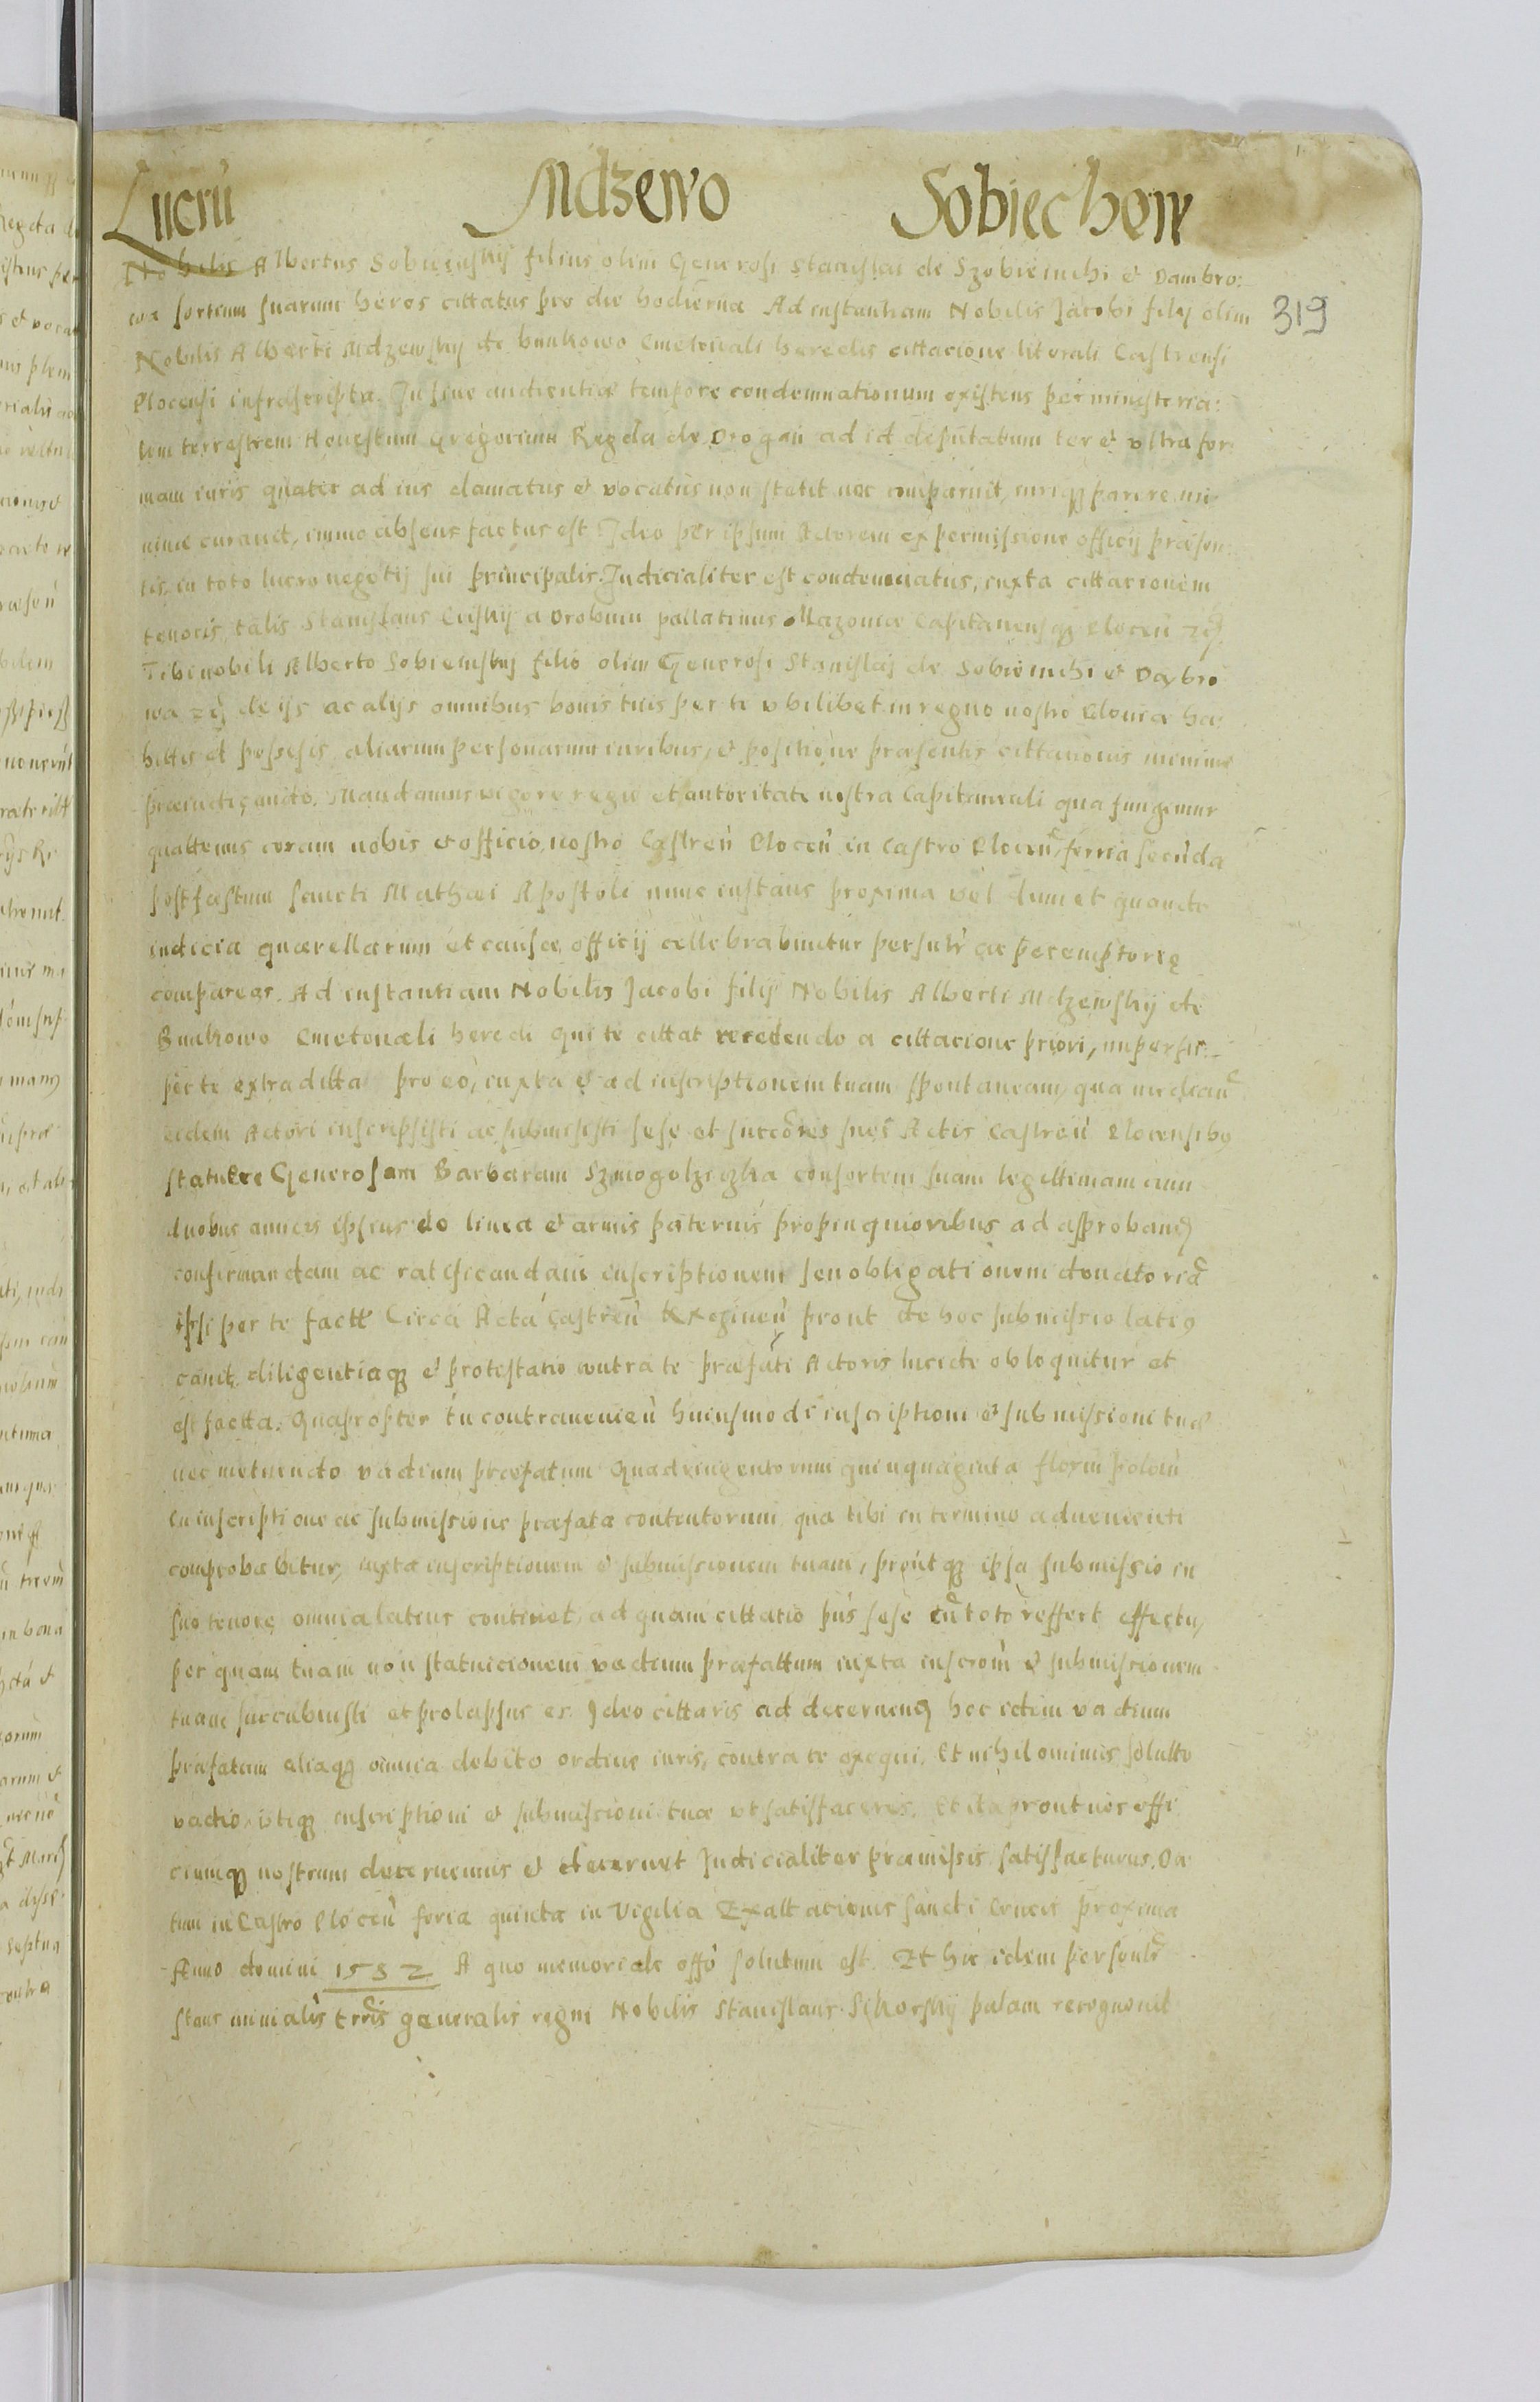 Lucrũ Mdzewo Sobiechow
Nobilis Albertus Sobieṃsky filius olim Generosi Stanislai de Szobiemihi et Dambro:
wa sortium suarum heres cittatus pro die hodierna Ad instantiam Nobilis Jacobi filij olim
319
Nobilis Alberti Mdzewsky de bunkowo Cmetouali heredis cittacione literali Castrensi
Plocensi infrascripta. In fine audientiæ tempore condemnationum existens per ministeria:
lem terrestrem Honestum Gregorium Regda de Drogan ad id deputatum ter et vltra for
mam iuris quater ad ius clamatus et vocatus non stetit nec comparuit, iuriq parere mi
nime curauit, immo absens factus est Ideo per ipsum Actorem ex permissione officij præsen:
tis, in toto lucro negotij sui principalis Judicialiter est condemnatus, iuxta cittacionem
tenoris talis Stanislaus a Drobnin pallatinus Mazouiæ Capitaneusq Plocen̄ zc
Tibi nobili Alberto Sobiemsky filio olim Generosi Stanislaj de Sobiemihi et Dąbro
wa zc de ijs ac alijs omnibus bonis tuis per te vbilibet in regno nostro Ploniæ ha:
bittis et possesis aliarum personarum iuribus, et positione præsentis cittationis minime
præiudicando. Mandamus vigore regio et autoritate nostra Capitaneali qua fungimur
quattenus coram nobis et officio nostro Castren̄ Plocen̄ in Castro Plocen̄ ferria secũda
post festum sancti Mathæi Apostoli nunc instans proxima vel dum et quando
iudicia quærellarum et causæ officij cellebrabuntur personlr ac peremptorie
compareas. Ad instantiam Nobilis Jacobi filij Nobilis Alberti Mdzewsky de
Bunkowo Cmetouali heredi qui te cittat recedendo a cittacione priori, nuper
per te extraditta pro eo, iuxta et ad inscriptionem tuam spontaneam, qua mediañ
eidem Actori inscripsisti ac submisisti sese et succores suos Actis Castren̄ Plocensibꝰ
statuere Generosam Barbaram Szmogolziczka consortem suam legittimam cum
duobus amicis ipsius de linea et armis paternis propinquioribus ad approband
confirmandam ac ratificandam inscriptionem seu obligationem donatoriã
ipsi per te factt Circa Acta Castren̄ Exinen̄ prout de hoc submissio latiꝰ
canit, diligentiaq et protestatio contra te præfati Actoris lucide obloquitur et
est facta. Quapropter tu contraueniens huiusmodi inscriptioni et submissioni tuæ
nec metuendo vadium præfatum Quadringentorum quinquaginta floren polon̄
in inscriptione ac submissione præfata contentorum, qua tibi in termino aduenienti
comprobabitur, iuxta inscriptionem et submissionem tuam, proutq ipsa submissio in
suo tenore omnia latius continet, ad quam cittatio pñs sese cũ toto reffert effectu,
per quam tuam non statuicionem vadium præfattum iuxta inscrom et submissionem
tuam succubuisti et prolapsus es. Ideo cittaris ad decernend hoc idem vadium
præfatum aliaq omnia debito ordine iuris, contra te exequi. Et nihilominus solutto
vadio, vtiq inscriptioni et submissioni tuæ vt satisfaceres. Et ita prout nos offi
ciumq nostrum decernemus et decernet Judicialiter præmissis satisfacturus. Da
tum in Castro Plocen̄ feria quinta in Vigilia Exaltationis sancti Crucis proxima
Anno domini 1582 A quo memoriale offo solutum est. Et hic idem personlr
stans minialis trris generalis regni Nobilis Stanislaus Sikorsky palam recognouit